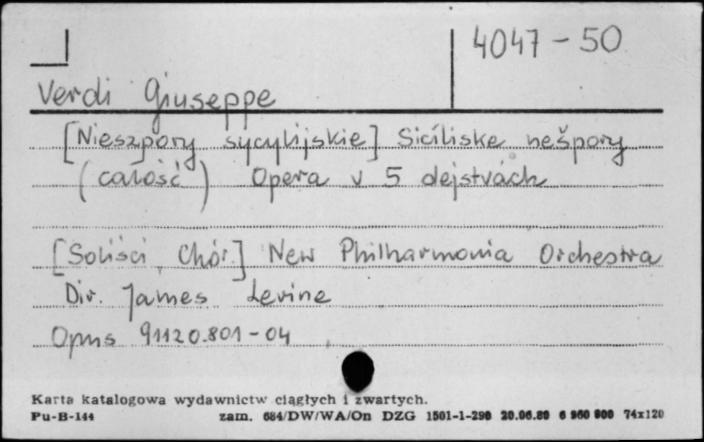 4047-50
Verdi Giuseppe
[Nieszpory sycylijskie] Siciliske nešpory
(całość) Opera v 5 dejstvách
[Soliści, Chór.] New Philharmonia Orchestra
Dir. James Levine
Opus 91120.801-04
Karta katalogowa wydawnictw ciągłych i zwartych.
Pu-B-144 zam. 684/DW/WA/On DZG 1501-1-290 20.06.80 6 960 800 74x120